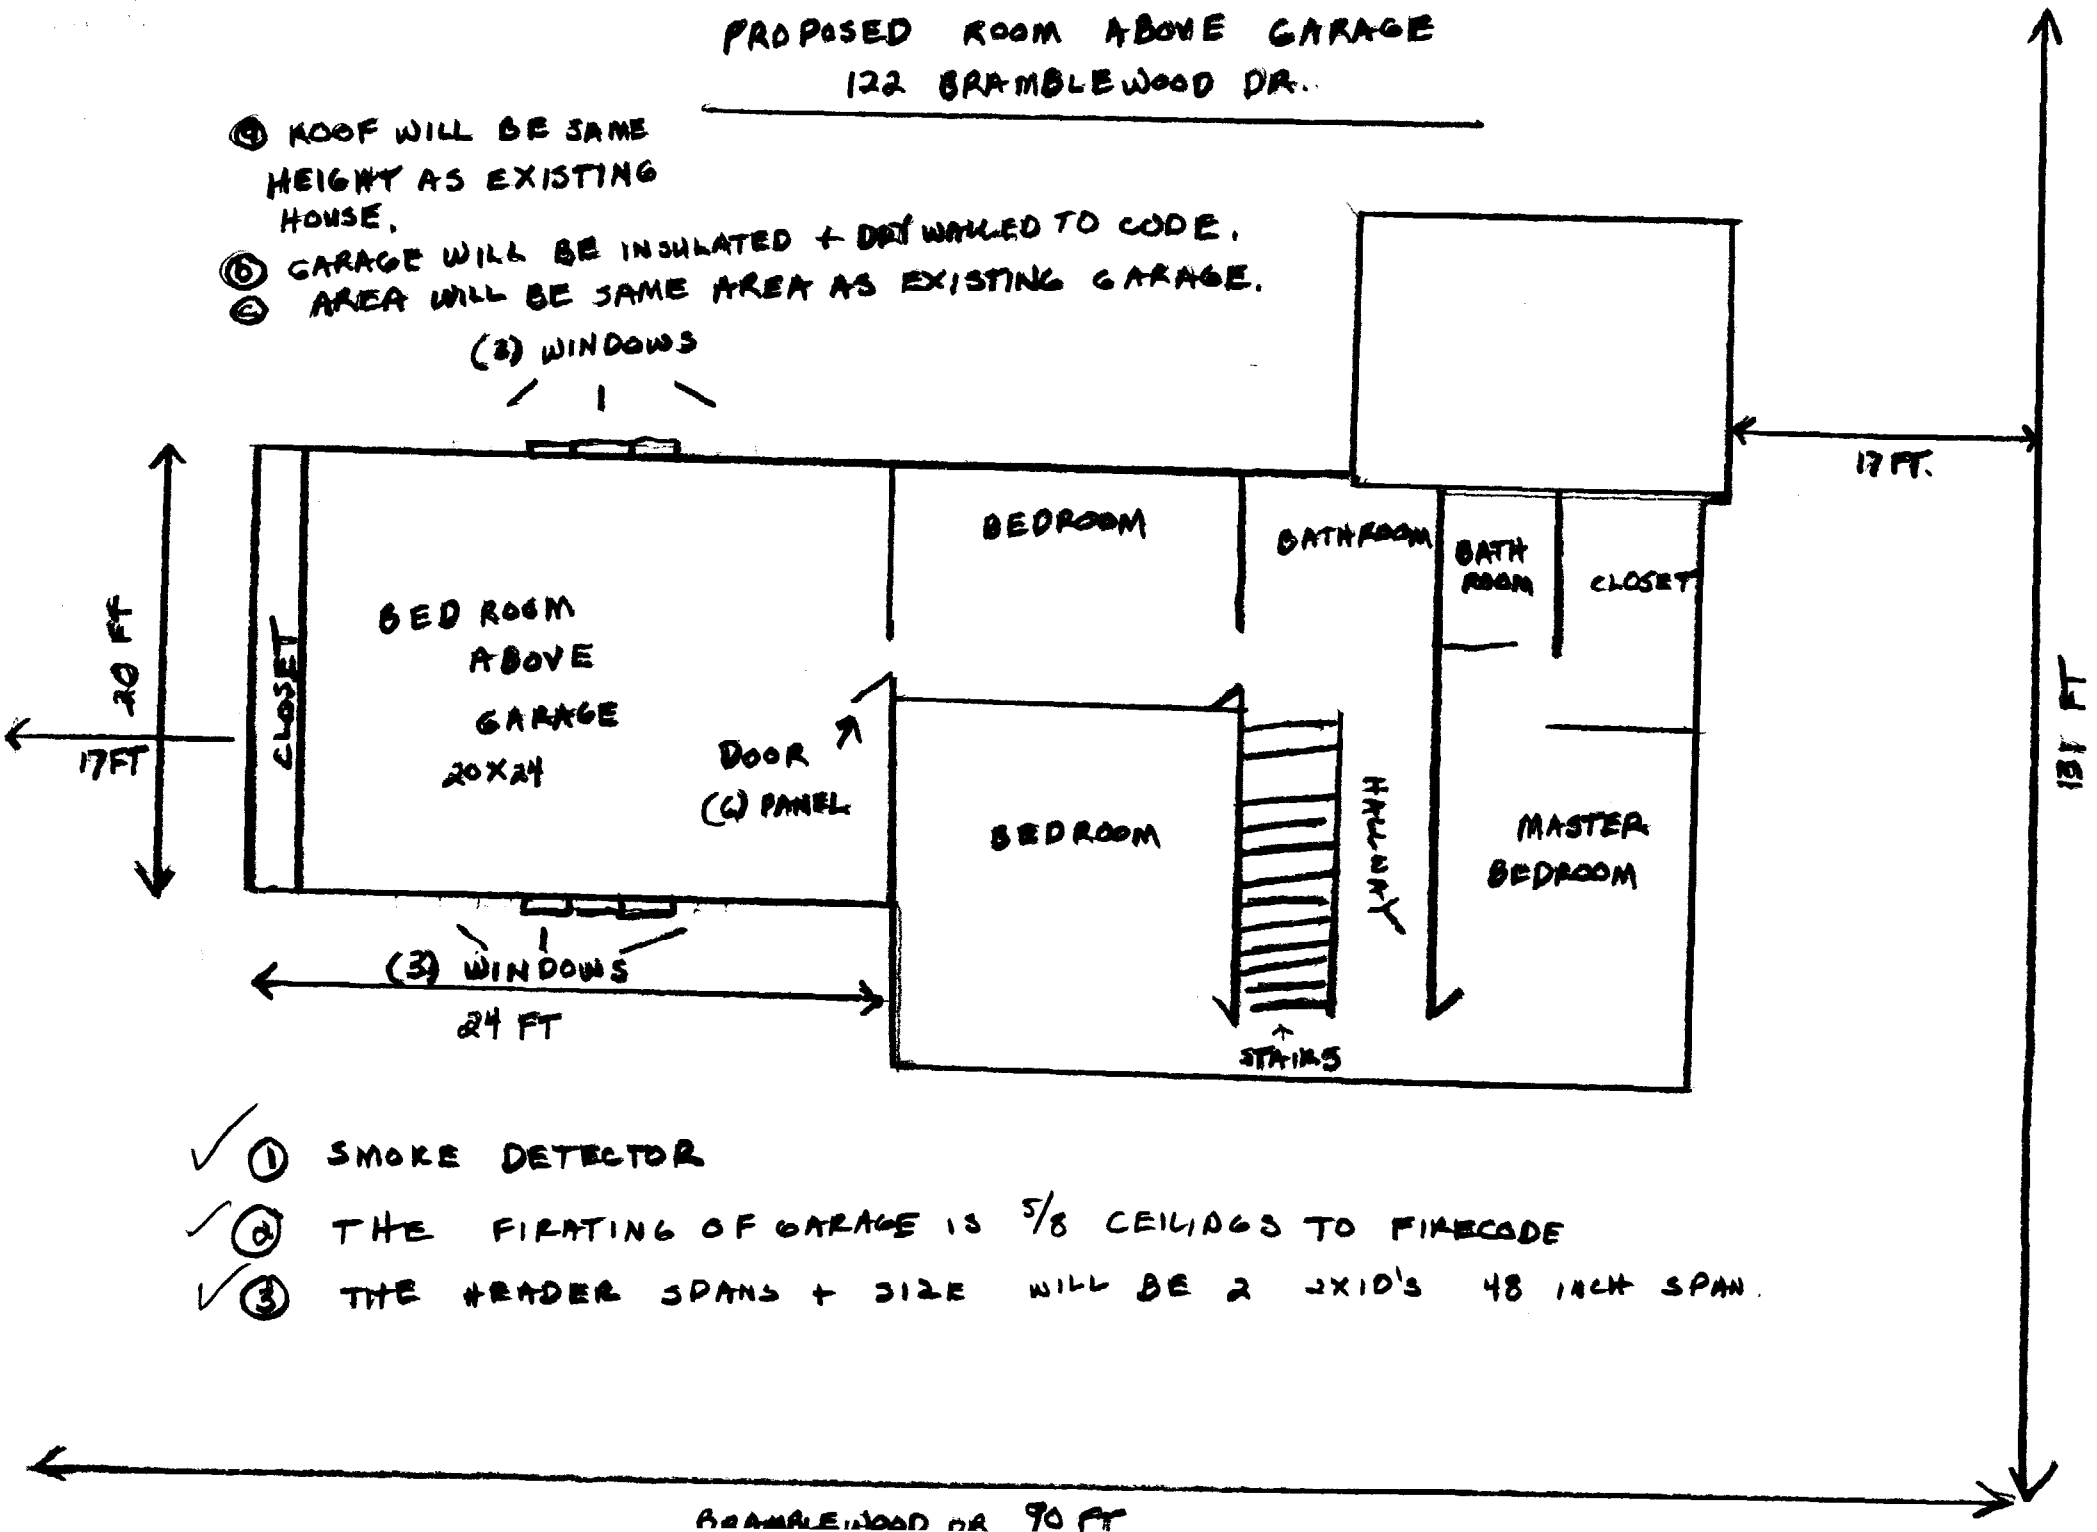 PROPOSED ROOM ABOVE GARAGE
122 BRAMBLEWOOD DR.
(a) ROOF WILL BE SAME
HEIGHT AS EXISTING
HOUSE.
(b) GARAGE WILL BE INSULATED + DRYWALLED TO CODE.
(c) AREA WILL BE SAME AREA AS EXISTING GARAGE.
(3) WINDOWS
17 FT.
20 FT
17 FT
CLOSET
BED ROOM
ABOVE
GARAGE
20X24
DOOR
(6) PANEL
BEDROOM
BATHROOM
BATH
ROOM
CLOSET
BEDROOM
HALLWAY
MASTER
BEDROOM
STAIRS
131 FT
(3) WINDOWS
24 FT
✓ ① SMOKE DETECTOR
✓ ② THE FIRATING OF GARAGE IS 5/8 CEILINGS TO FIRECODE
✓ ③ THE HEADER SPANS + SIZE WILL BE 2 2X10'S 48 INCH SPAN.
BRAMBLEWOOD DR 90 FT